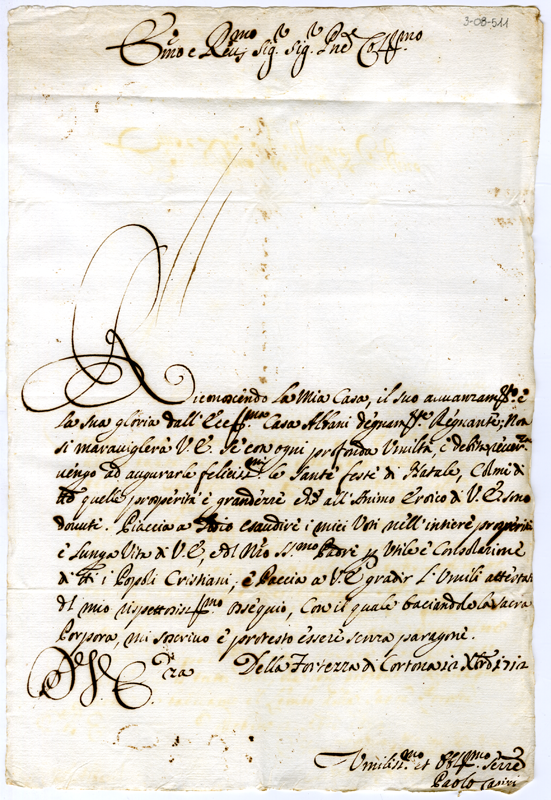 3-08-511
Emo e Reumo Sigr. Sigr. Pne Colmo
Riconoscendo la Mia Casa, il suo auuanzamto. è
la sua gloria dall'Ecc.ma Casa Albani degnamte. Regnante; Non
si marauiglerà V. E. se con ogni profonda Umiltà, è debita
uengo ad augurarle feliciss.me le Sante feste di Natale, Colme di
tte quelle prosperità è grandezze che all'Animo Eroico di V. E. sono
douute. Piaccia a Dio esaudire i miei Voti nell'intiere prosperità
è lunga Vita di V. E, e del Nro Ss.mo Padre p. Utile è Consolazione
di tti i Popoli Cristiani; è Piaccia a V. E. gradir l'Umili attestati
del mio rispettosiss.mo ossequio, Con il quale baciandole la Sacra
Porpora, mi soscriuo è protesto essere senza paragone.
Della Fortezza di Cortona
Umiliss.mo et Obl.mo Serre
Paolo